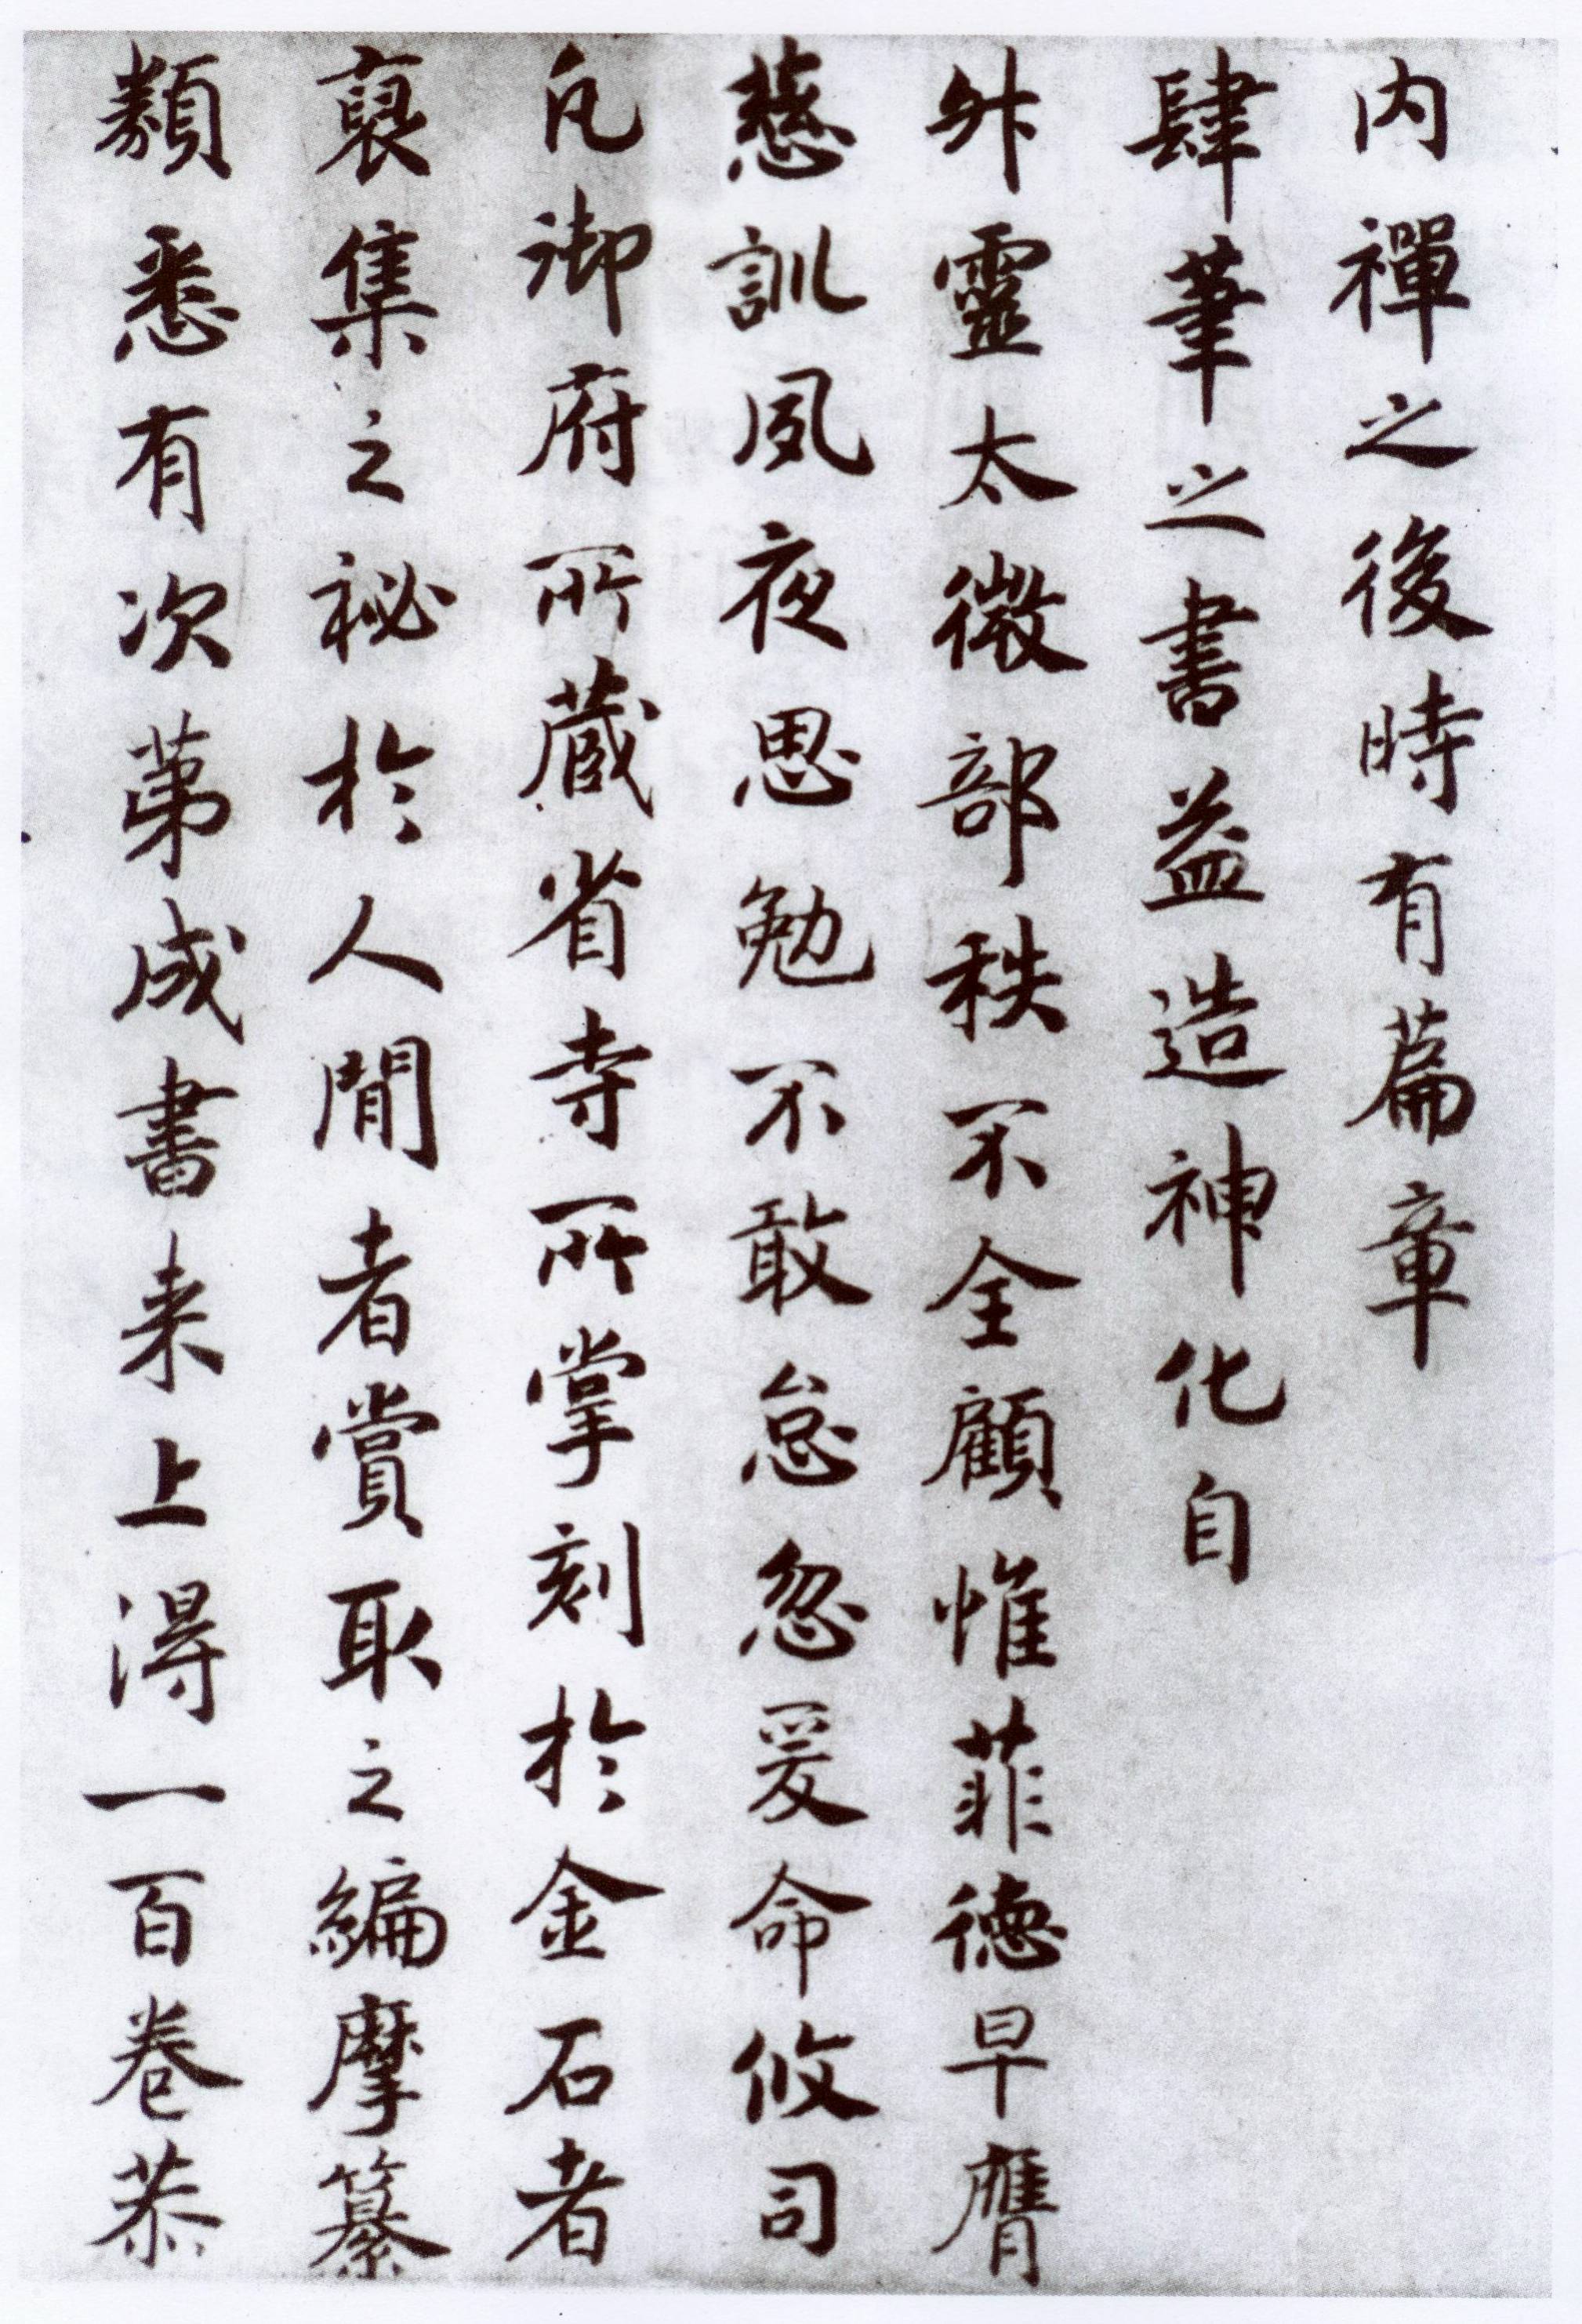 內禪之後時有篇章
肆筆之書益造神化自
升靈太微部秩不全顧惟菲德早膺
慈訓夙夜思勉不敢怠忽爰命攸司
凡御府所藏省寺所掌刻於金石者
裒集之祕於人間者賞取之編摩纂
類悉有次第成書来上得一百卷恭